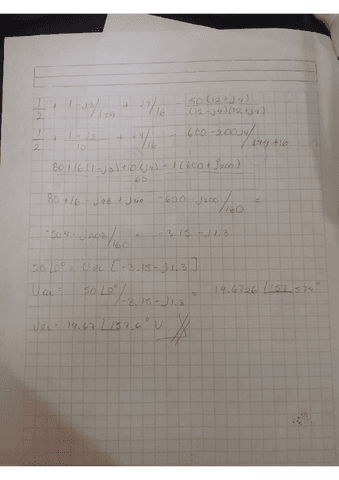 1/2 + 1-j3/1+9 + j4/16 - 50(12+j4)/(12-j4)(12+j4)
1/2 + 1-j3/10 + j4/16 - 600-200j4/144+16
80+16(1-j3)+10(j4)-1(600+j200)
80+16-j48+j40-600-j200/160 =
-504-j208/160 = -3.15-j1.3
50∠0° = [-3.15-j1.3]
= 50∠0°/-3.15-j1.3 = 19.6726∠157.574°
= 19.67∠157.6° V